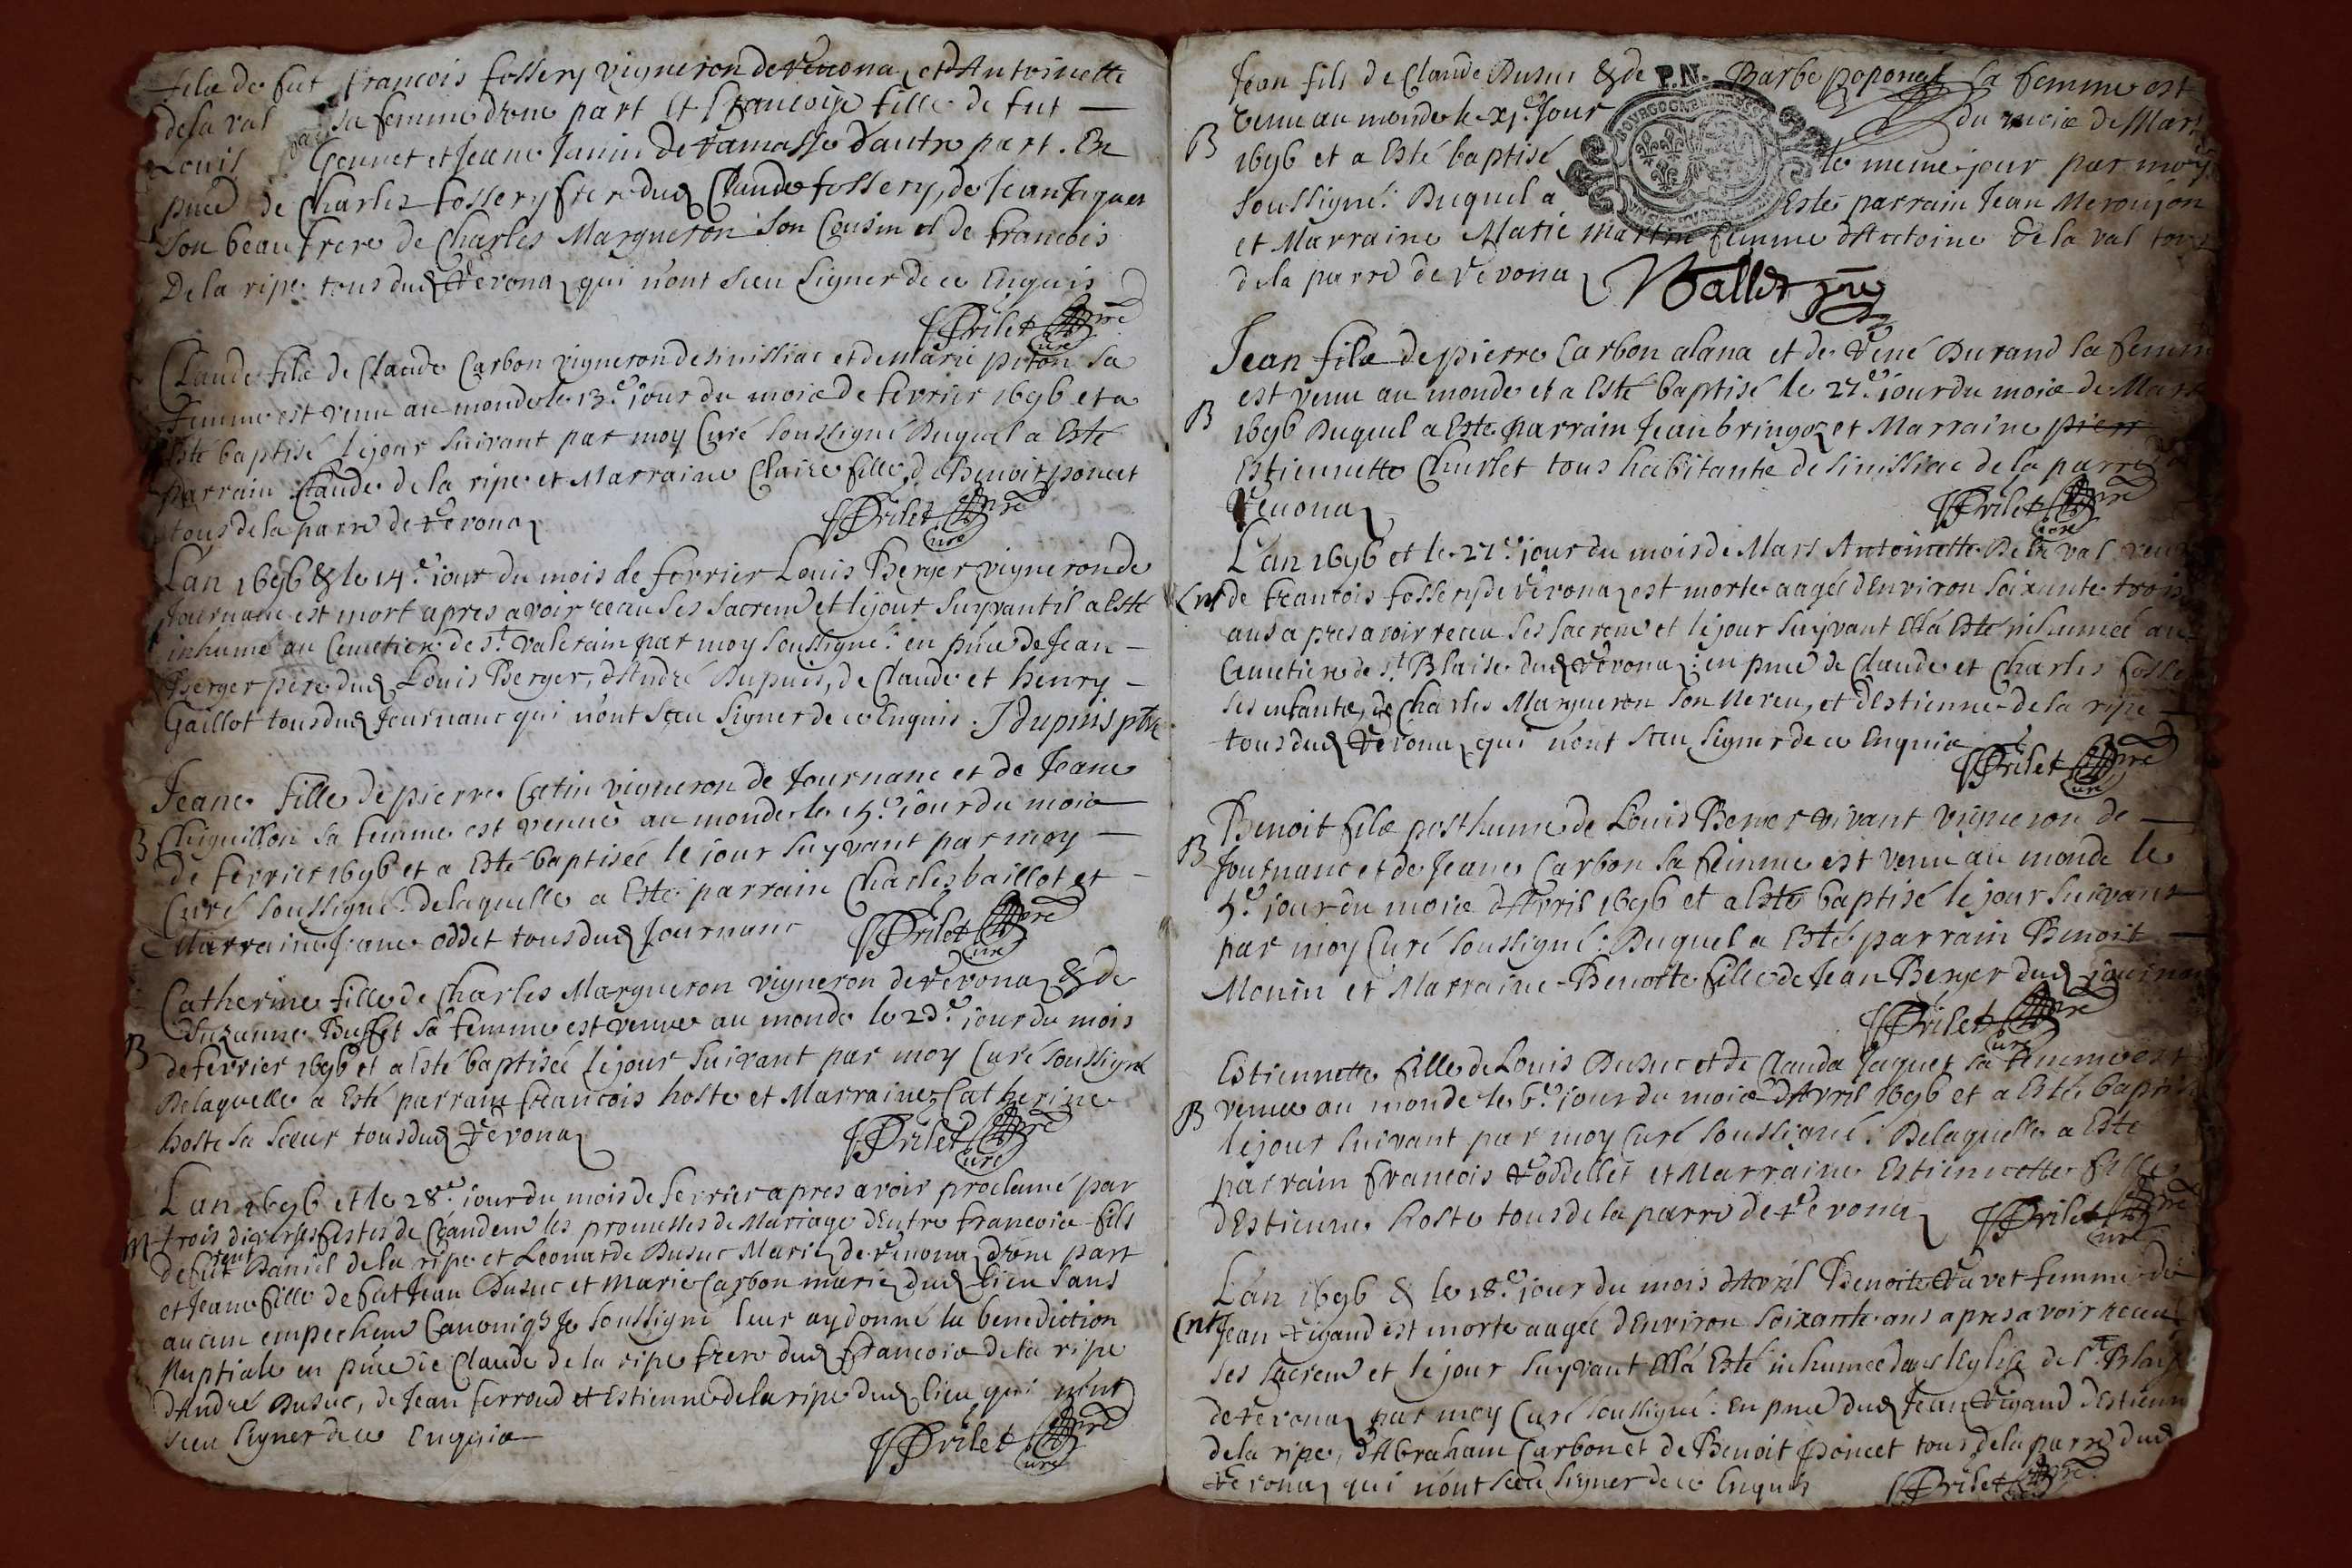 fils de fut francois fossery vigneron de verona et d'Antoinette
de la val sa femme d'une part Et francoise fille de fut —
Louis Gonnet et Jeane Janin de ramasse d'autre part. En
pnce de Charles fossery frere dud Claude fossery, de Jean Jaques
son beau frere de Charles Margueron son Cousin et de francois
De la ripe tous dud verona qui n'ont sceu signer de ce Enquis
Prilet pre
Curé
Claude fils de Claude Carbon vigneron de sinissiac et de marie piton sa
femme est venu au monde le 13e jour du mois de fevrier 1696 et a
esté baptisé le jour suivant par moy Curé soussigné Duquel a Esté
parrain Claude de la ripe et Marraine Claire fille de Benoit poncet
tous de la parre de verona
Prilet pre
Curé
L'an 1696 & le 14e jour du mois de fevrier Louis Berger vigneron de
Journanc est mort apres avoir receu ses sacrem et le jour suyvant il a Esté
inhumé au Cemetiere de st. valerain par moy soussigné: en pnce de Jean —
Berger pere dud Louis Berger, d'André Dupuis, de Claude et henry —
Gaillot tous dud Journanc qui n'ont sceu signer de ce Enquis. J dupuis ptre
Jeane fille de pierre Catin vigneron de Journanc et de Jeane
B Chiquillon sa femme est venuë au monde le 15e jour du mois
de fevrier 1696 et a Esté baptisée le jour suyvant par moy —
Curé soussigné. delaquelle a Esté parrain Charles baillot et —
Marraine Jeane oddet tous dud Journanc
Prilet pre
Curé
Catherine fille de Charles Margueron vigneron de verona & de
Suzanne Buffet sa femme est venue au monde le 23e jour du mois
B de fevrier 1696 et a esté baptisée le jour suivant par moy Curé soussigné
Delaquelle a Esté parrain francois hoste et Marraine Catherine
hoste sa soeur tous dud verona
Prilet pre
Curé
L'an 1696 et le 28e jour du mois de fevrier apres avoir proclamé par
M trois diverses festes de les promesses de Mariage d'Entre francois fils
de fut Daniel de la ripe et Leonarde Dusuc Mariez de verona d'une part
et Jeane fille de fut Jean Dusuc et marie Carbon mariez dud lieu sans
aucun empechem Canoniq Je soussigné leur ay donné la benediction
Nuptiale en pnce de Claude de la ripe frere dud francois de la ripe
d'André Dusuc, de Jean ferroud et Estienne de la ripe dud lieu qui n'ont
sceu signer de ce Enquis
Prilet pre
Curé
Jean fils de Claude Dusuc & de P.N. Barbe poponat sa femme est
venu au monde le xj.e Jour du mois de Mars
B 1696 et a Esté baptisé le meme jour par moy
soussigné: Duquel a Esté parrain Jean Meroujon
et Marraine Marie Martin femme d'Antoine de la val tous
de la parre de verona
Vallet
Jean fils de pierre Carbon alana et de René Durand sa femme
est venu au monde et a esté baptisé le 21e jour du mois de Mars
B 1696 Duquel a Esté parrain Jean bringoz et Marraine pierr
Estiennette Churlet tous habitants de sinissiac de la parre
verona
Prilet pre
Curé
L'an 1696 et le 21e jour du mois de Mars Antoinette De la val veuve
Ent de francois fossery de verona est morte aagée d'Environ soixante trois
ans apres avoir receu ses sacrem et le jour suyvant Ell'a Esté inhumée au
Cemetiere de st. Blaise dud verona: en pnce de Claude et Charles fosse
ses enfants, de Charles Margueron son Neveu, et d'Estienne de la ripe —
tous dud verona qui n'ont sceu signer de ce Enquis
Prilet pre
Curé
Benoit fils posthume de Louis Berger vivant vigneron de —
B Journanc et de Jeane Carbon sa femme est venu au monde le
5e jour du mois d'Avril 1696 et a Esté baptisé le jour suivant
par moy Curé soussigné: Duquel a Esté parrain Benoit —
Monin et Marraine Benoite fille de Jean Berger dud journa
Prilet pre
Curé
Estiennette fille de Louis Dusuc et de Clauda Jaquet sa femme est
B venue au monde le 6e jour du mois d'Avril 1696 et a Esté baptisé
le jour suivant par moy Curé soussigné: Delaquelle a Esté
parrain francois voddellet et Marraine Estiennette fille
d'Estienne hoste tous de la parre de verona
Prilet pre
Curé
L'an 1696 & le 18e jour du mois d'Avril Benoite femme de
Ent Jean vigand est morte aagée d'Environ soixante ans apres avoir receu
ses sacrem et le jour suyvant Ell'a Esté inhumée dans l'Eglise de st Blaise
de verona par moy Curé soussigné: En pnce dud Jean vigand d'Estienn
de la ripe, d'Abraham Carbon et de Benoit poncet tous de la parre dud
verona qui n'ont sceu signer de ce Enquis
Prilet pre